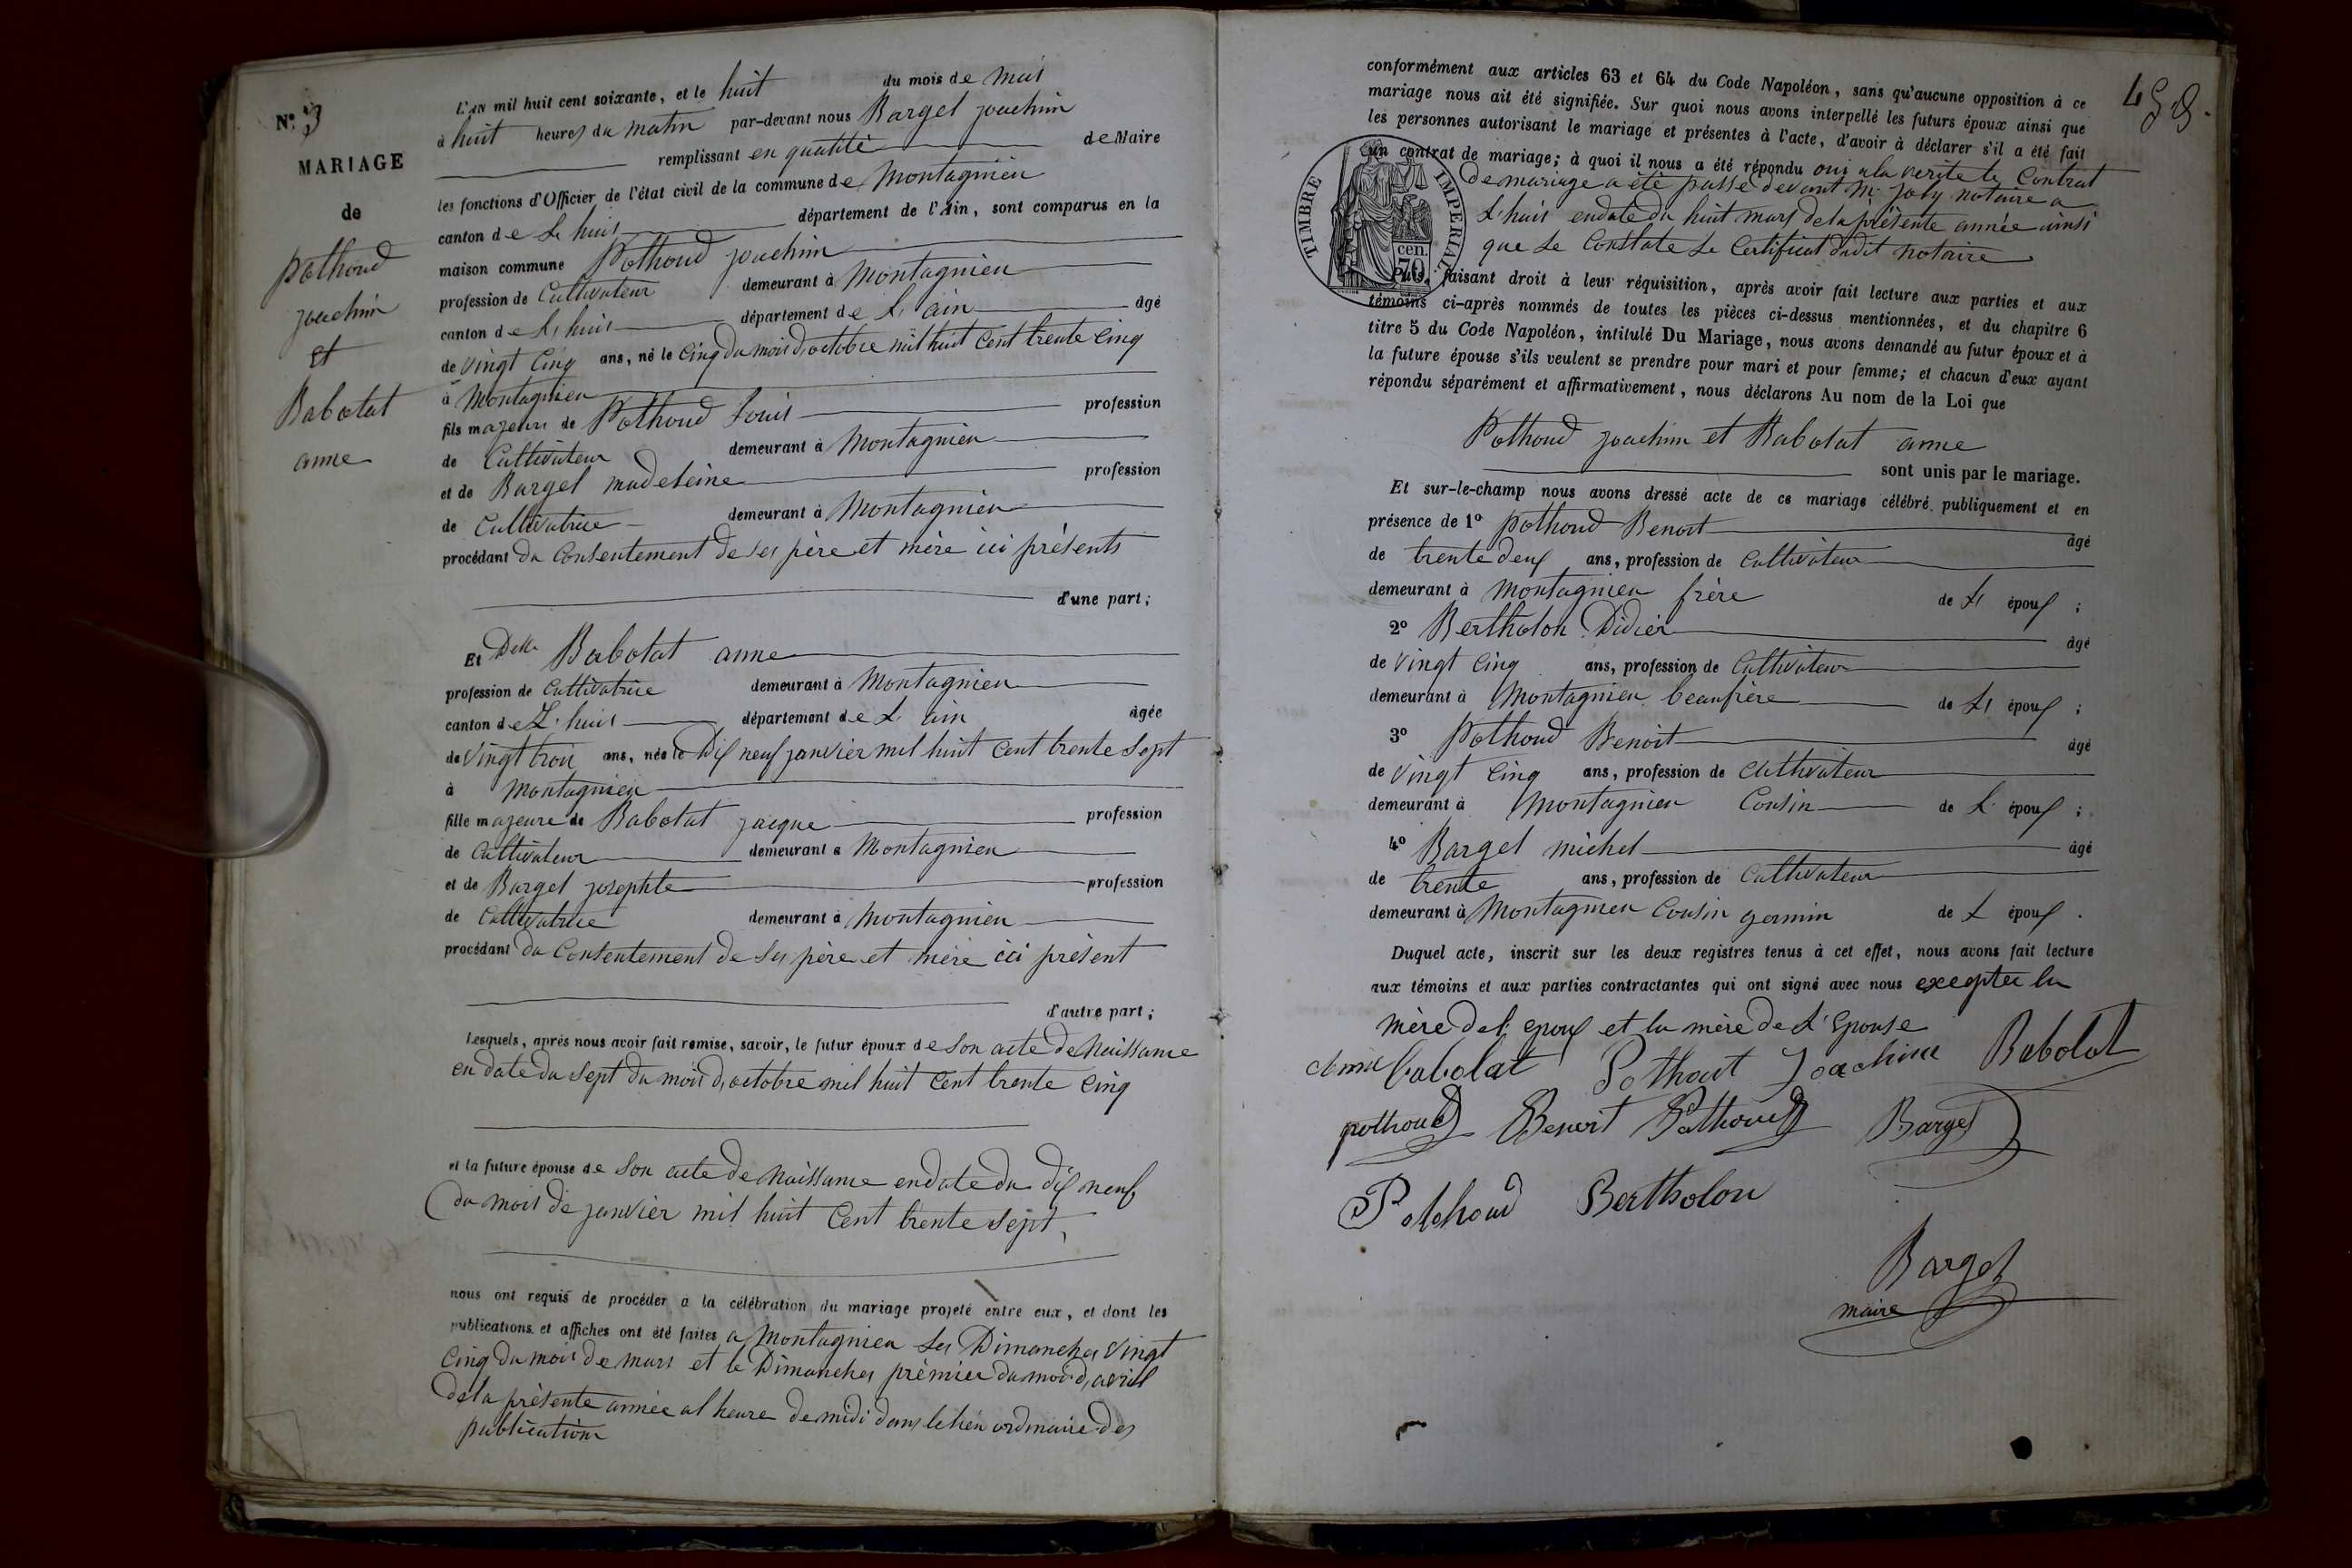 N.º 3
MARIAGE
de
pothoud
joachin
et
Babolat
anne
L'AN mil huit cent soixante, et le huit du mois de mai
à huit heures du matin par-devant nous Bargel joachin
remplissant en qualité de Maire
les fonctions d'Officier de l'état civil de la commune de Montagnieu
canton de L, huis département de l'Ain, sont comparus en la
maison commune Pothoud joachin
profession de Cultivateur demeurant à Montagnieu
canton de L, huis département de L, ain âgé
de vingt cinq ans, né le cinq du mois d, octobre mil huit cent trente cinq
à Montagnieu
fils majeur de Pothoud Louis profession
de Cultivateur demeurant à Montagnieu
et de Bargel madeleine profession
de Cultivatrice demeurant à Montagnieu
procédant du Consentement de ses père et mère ici présents
d'une part;
Et Delle Babolat anne
profession de Cultivatrice demeurant à Montagnieu
canton de L'huis département de L' ain âgée
de vingt trois ans, née le Dix neuf janvier mil huit cent trente sept
à Montagnieu
fille majeure de Babolat jacque profession
de Cultivateur demeurant à Montagnieu
et de Bargel josephte profession
de Cultivatrice demeurant à Montagnieu
procédant du Consentement de ses père et mère ici présent
d'autre part;
Lesquels, après nous avoir fait remise, savoir, le futur époux de son acte de Naissance
en date du sept du mois d, octobre mil huit cent trente cinq
et la future épouse de son acte de Naissance en date du dix neuf
du mois de janvier mil huit cent trente sept,
nous ont requis de procéder à la célébration du mariage projeté entre eux, et dont les
publications et affiches ont été faites a Montagnieu les Dimanches vingt
cinq du mois de mars et le Dimanches prémier du mois d, avril
de la présente année al heure de midi dans le lieu ordinaire des
publication
458.
conformément aux articles 63 et 64 du Code Napoléon, sans qu'aucune opposition à ce
mariage nous ait été signifiée. Sur quoi nous avons interpellé les futurs époux ainsi que
les personnes autorisant le mariage et présentes à l'acte, d'avoir à déclarer s'il a été fait
un contrat de mariage; à quoi il nous a été répondu oui a la verité le Contrat
de mariage a été passé devant Mr joly notaire a
L'huis en date du huit mars de la présente année ainsi
que le Constate le Certificat dudit notaire
TIMBRE IMPERIAL
cen.
70
Puis, faisant droit à leur réquisition, après avoir fait lecture aux parties et aux
témoins ci-après nommés de toutes les pièces ci-dessus mentionnées, et du chapitre 6
titre 5 du Code Napoléon, intitulé Du Mariage, nous avons demandé au futur époux et à
la future épouse s'ils veulent se prendre pour mari et pour femme; et chacun d'eux ayant
répondu séparément et affirmativement, nous déclarons Au nom de la Loi que
Pothoud joachin et Babolat anne
sont unis par le mariage.
Et sur-le-champ nous avons dressé acte de ce mariage célébré publiquement et en
présence de 1º pothoud Benoit âgé
de trente deux ans, profession de Cultivateur
demeurant à Montagnieu frère de L, époux;
2º Bertholon Didier âgé
de vingt cinq ans, profession de Cultivateur
demeurant à Montagnieu beaufrère de L, époux;
3º Pothoud Benoit âgé
de vingt cinq ans, profession de Cultivateur
demeurant à Montagnieu Cousin de L' époux;
4º Bargel michel âgé
de trente ans, profession de Cultivateur
demeurant à Montagnieu Cousin germin de L époux.
Duquel acte, inscrit sur les deux registres tenus à cet effet, nous avons fait lecture
aux témoins et aux parties contractantes qui ont signé avec nous exceptée la
mère de l, epoux et la mère de L'epouse
Anna babolat Pothout Joachim Babolat
pothoud Benoit Pothoud Bargel
Pothoud Bertholon
Bargel
maire